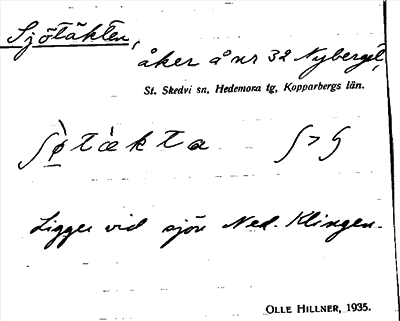 Sjötäkten,
åker å nr 32 Nyberget,
St. Skedvi sn, Hedemora tg, Kopparbergs län.
ʃø̀tækta ʃ > ʃ
Ligger vid sjön Ned. Klingen.
OLLE HILLNER, 1935.